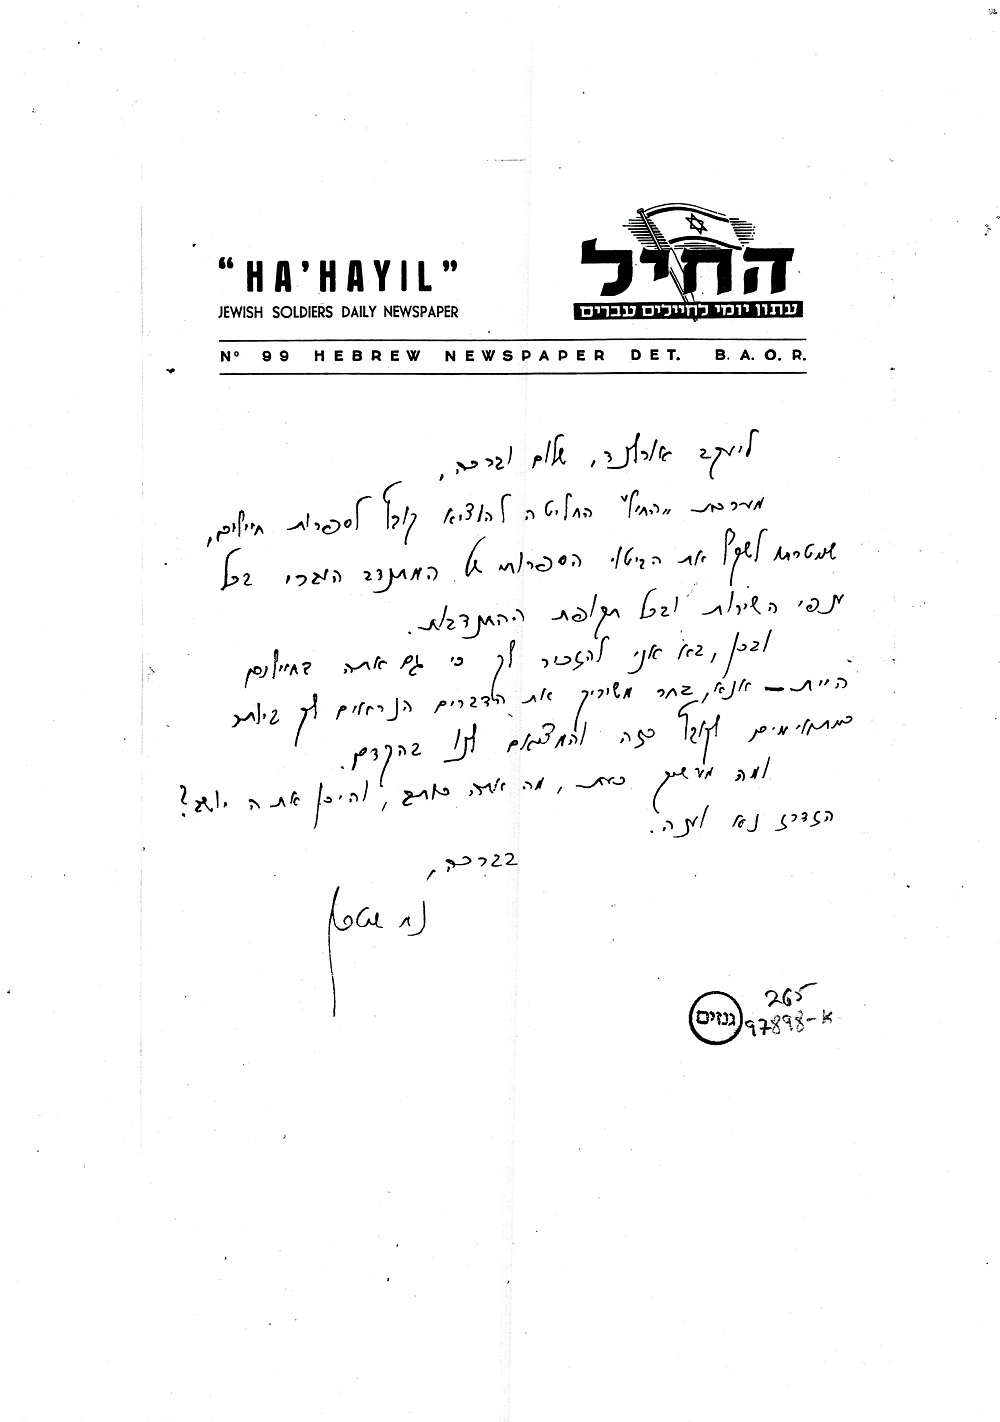 “HA’HAYIL”
JEWISH SOLDIERS DAILY NEWSPAPER
החיל
עתון יומי לחיילים עברים
Nº 99 HEBREW NEWSPAPER DET. B. A. O. R.
ליעקב אורלנד, שלום וברכה,
מערכת "החיל" החליטה להוציא קובץ לספרות חיילים,
שמטרתו לשקף את הביטוי הספרותי של המתנדב העברי בכל
ענפי השירות ובכל תקופת ההתנדבות.
ובכן, בא אני להזכור לך כי גם אתה בחיילנו
היית – אנא, בחר משיריך את הדברים הנראים לך ביותר
כמתאימים לקובץ כזה והמציאם לנו בהקדם.
ומה מעשיך כעת, מה אתה כותב, והיכן אתה יושב?
הזדרז נא וענה.
בברכה,
גנזים
265
97898-א